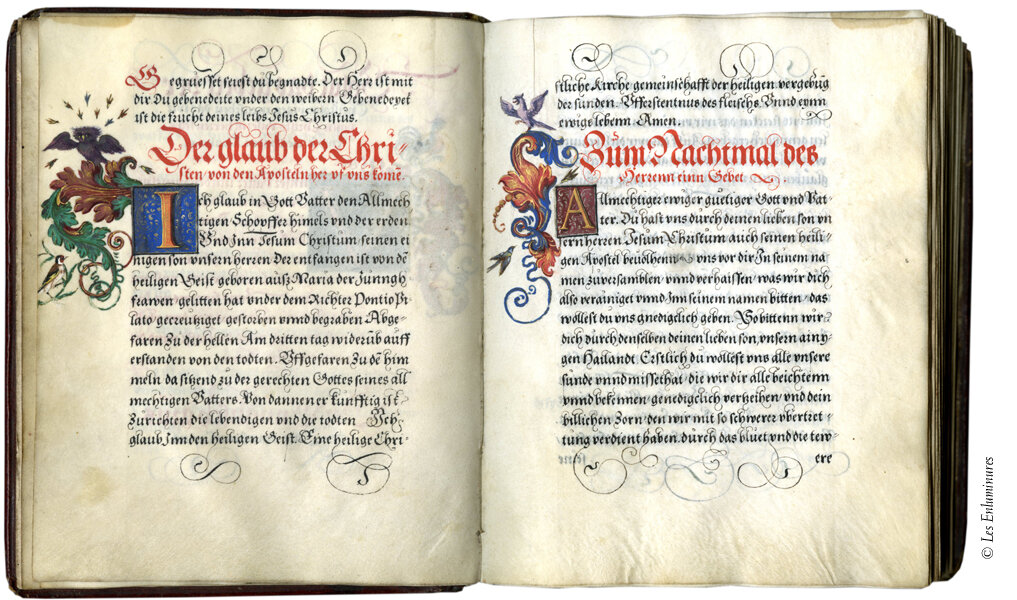 Gegruesset seiest du begnadte. Der Herr ist mit
dir Du gebenedeite vnder den weibern Gebenedeyet
ist die frucht deines leibs Jesus Christus.
Der glaub der Chri-
sten von den Aposteln her vf vns kome̅.
Ich glaub in Gott Vatter den Allmech
tigen Schopffer himels vnd der erden
Vnd Inn Jesum Christum seinen ei
nigen son vnsern herren Der entfangen ist von de̅
heiligen Geist geboren auß Maria der Junngk
frawen gelitten hat vnder dem Richter Pontio Pi
lato gecreutziget gestorben vnnd begraben Abge-
faren Zu der hellen Am dritten tag widerub auff
erstanden von den todten. Vffgefaren Zu de̅ him
meln da sitzend zu der gerechten Gottes seines all
mechtigen Vatters. Von dannen er kunfftig ist
Zurichten die lebendigen vnd die todten Ich
glaub Inn den heiligen Geist. Eine heilige Chri-
stliche Kirche gemeinschafft der heiligen vergebu̅g
der sunden. Vfferstentnus des fleischs. Vnnd eynn
ewigs lebenn. Amen.
Zum Nachtmal des
Herrenn einn Gebet
Allmechtiger ewiger guetiger Gott vnd Vat-
ter. Du hast vns durch deinen lieben son vn
sern herren Jesum Christum auch seinen heili-
gen Apostel beuolhenn vns vor dir In seinem na
men zuversamblen vnd verhaissen was wir dich
also verainiget vnnd Inn seinem namen bitten das
wöllest du vns gnediglich geben. So bitten wir
dich durch denselben deinen lieben son, vnsern ainy-
gen Hailandt Erstlich du wöllest vns alle vnsere
sunde vnnd missethat die wir dir alle beichtenn
vnnd bekennen genediglich verzeihen vnd dein
billichen Zorn den wir mit so schwerer vbertret-
tung verdient haben durch das bluet vnd die tew-
ere
© Les Enluminures